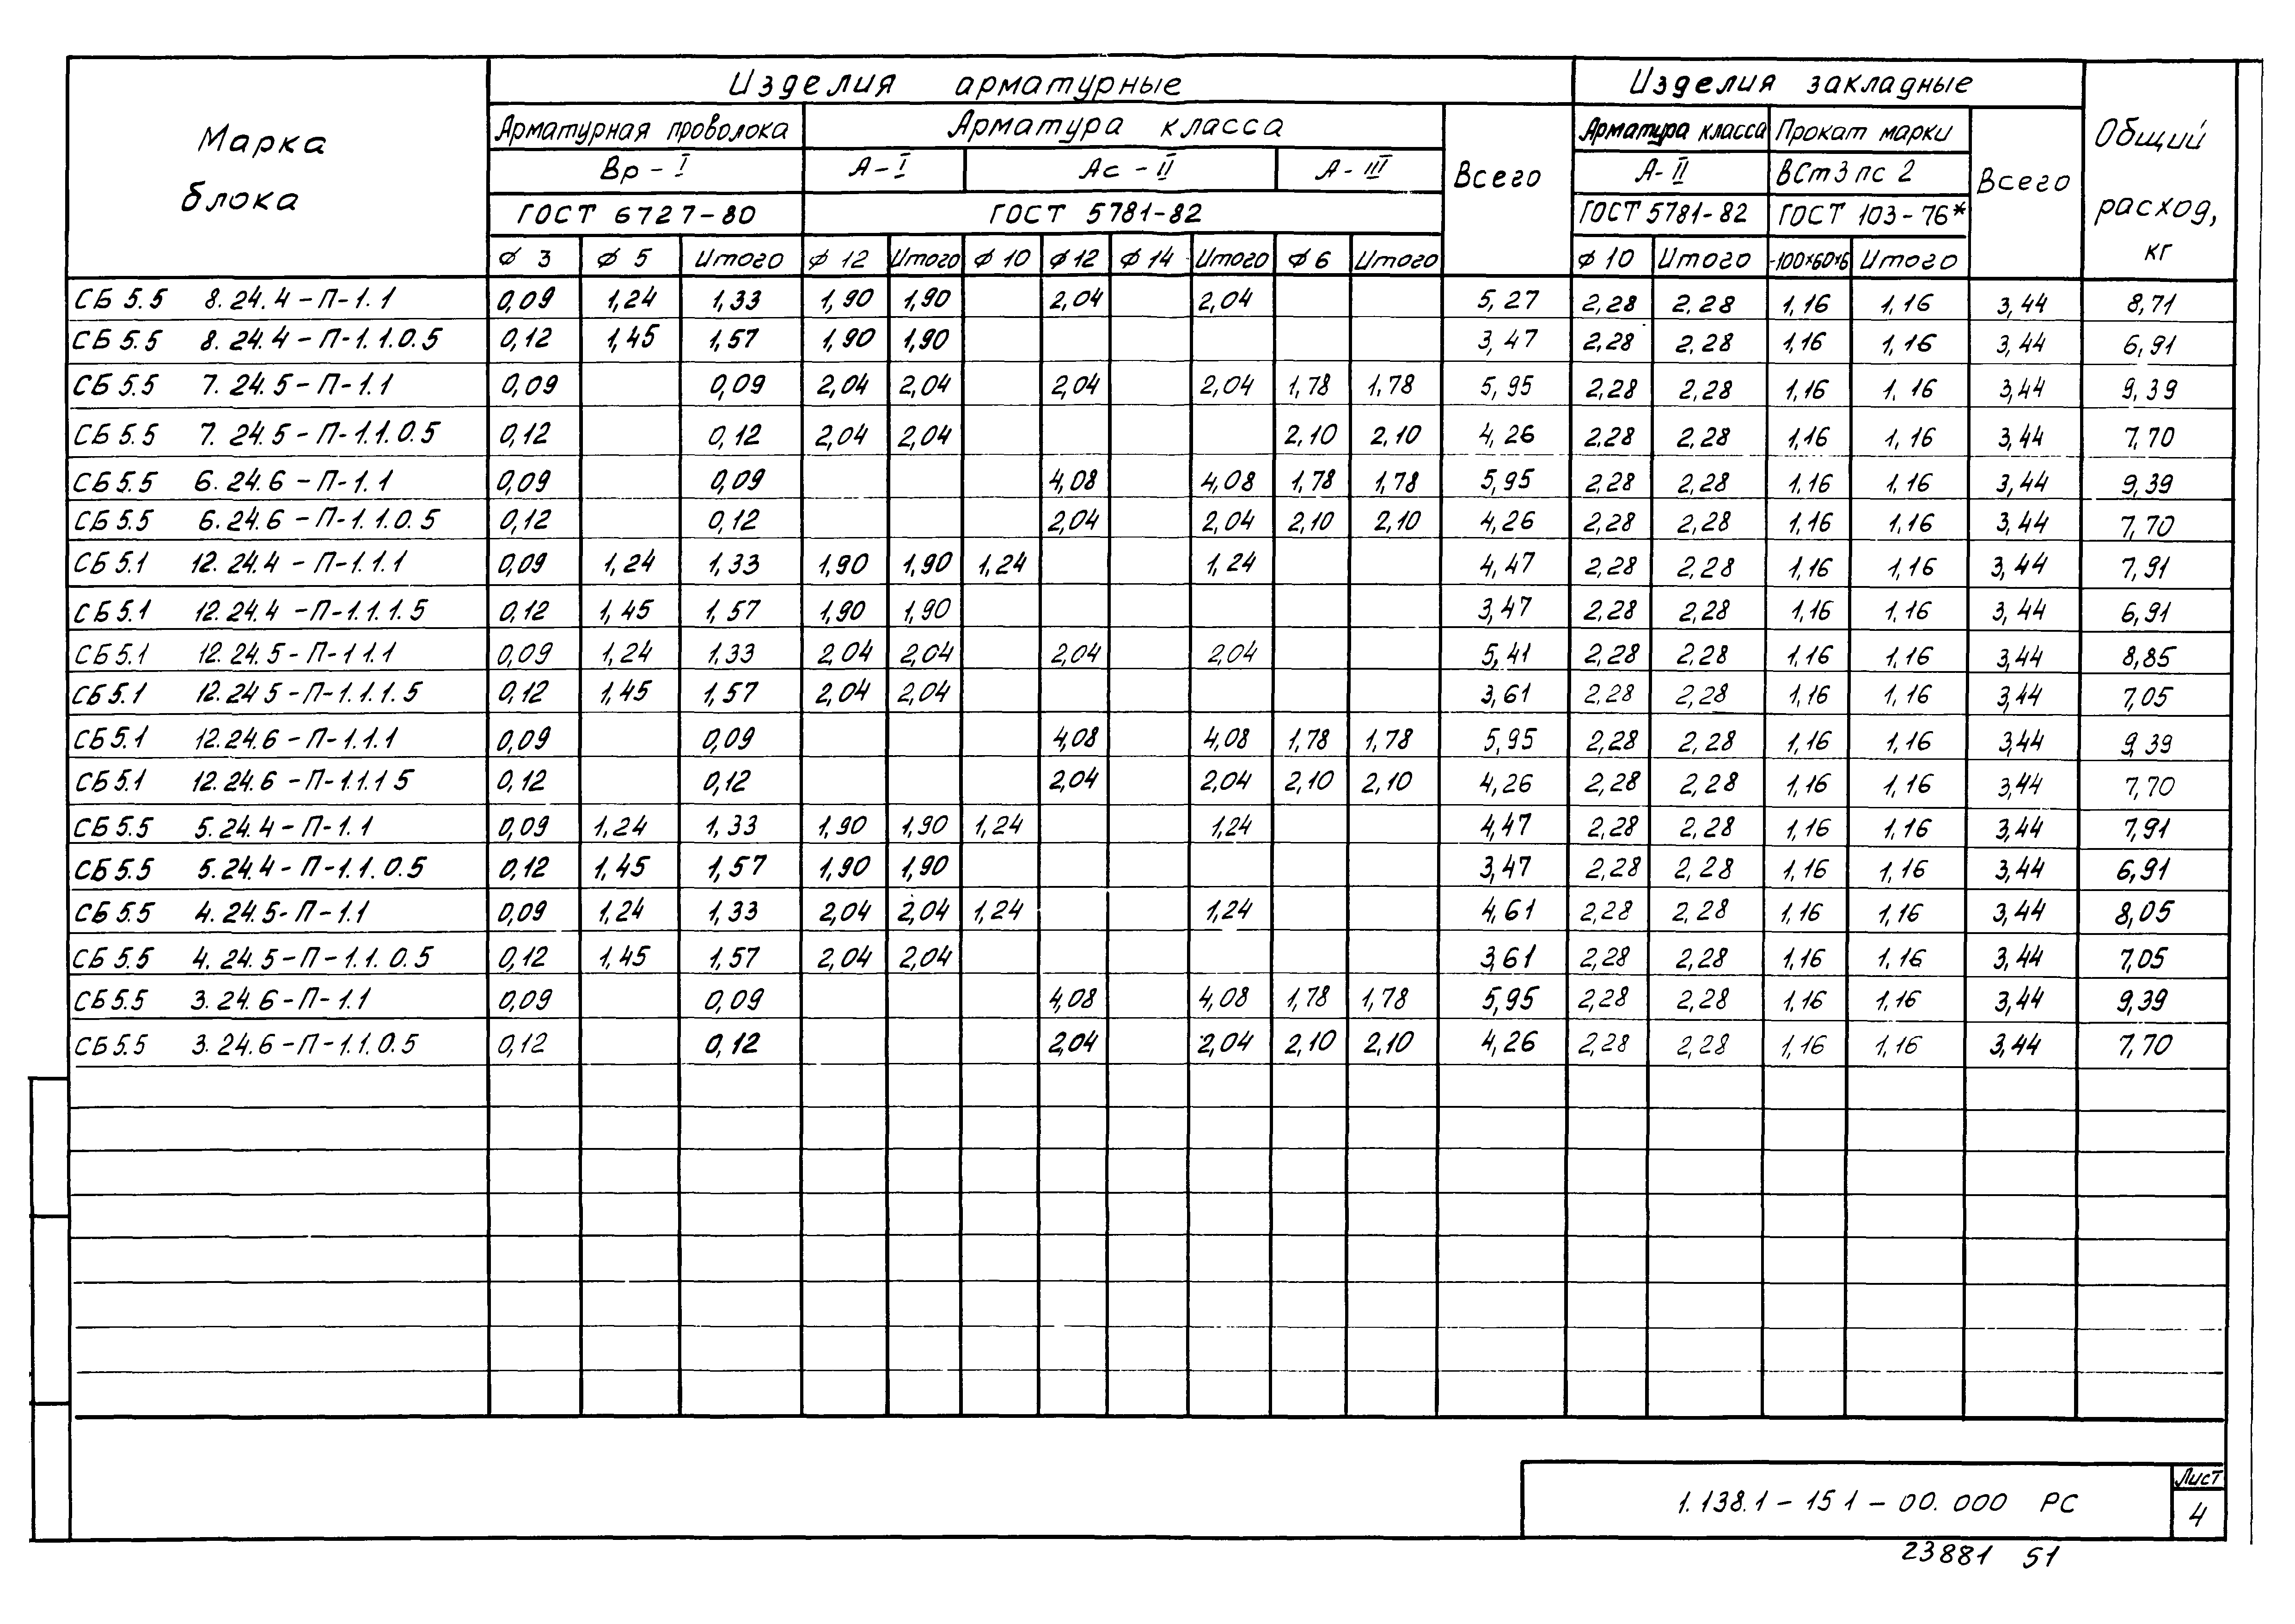 Марка блока
Изделия арматурные
Изделия закладные
Общий расход, кг
Арматурная проволока
Арматура класса
Всего
Арматура класса
Прокат марки
Всего
Вр-I
А-I
Ас-II
А-III
А-II
ВСт3пс2
ГОСТ 6727-80
ГОСТ 5781-82
ГОСТ 5781-82
ГОСТ 103-76*
ф 3 ф 5 Итого ф 12 Итого ф 10 ф12 ф 14 Итого ф 6 Итого ф 10 Итого -100×60×6 Итого
СБ 5.5 8.24.4-П-1.1 0,09 1,24 1,33 1,90 1,90 2,04 2,04 5,27 2,28 2,28 1,16 1,16 3,44 8,71
СБ 5.5 8.24.4-П-1.1.0.5 0,12 1,45 1,57 1,90 1,90 3,47 2,28 2,28 1,16 1,16 3,44 6,91
СБ 5.5 7.24.5-П-1.1 0,09 0,09 2,04 2,04 2,04 2,04 1,78 1,78 5,95 2,28 2,28 1,16 1,16 3,44 9,39
СБ 5.5 7.24.5-П-1.1.0.5 0,12 0,12 2,04 2,04 2,10 2,10 4,26 2,28 2,28 1,16 1,16 3,44 7,70
СБ 5.5 6.24.6-П-1.1 0,09 0,09 4,08 4,08 1,78 1,78 5,95 2,28 2,28 1,16 1,16 3,44 9,39
СБ 5.5 6.24.6-П-1.1.0.5 0,12 0,12 2,04 2,04 2,10 2,10 4,26 2,28 2,28 1,16 1,16 3,44 7,70
СБ 5.1 12.24.4-П-1.1.1 0,09 1,24 1,33 1,90 1,90 1,24 1,24 4,47 2,28 2,28 1,16 1,16 3,44 7,91
СБ 5.1 12.24.4-П-1.1.1.5 0,12 1,45 1,57 1,90 1,90 3,47 2,28 2,28 1,16 1,16 3,44 6,91
СБ 5.1 12.24.5-П-1.1.1 0,09 1,24 1,33 2,04 2,04 2,04 2,04 5,41 2,28 2,28 1,16 1,16 3,44 8,85
СБ 5.1 12.24 5-П-1.1.1.5 0,12 1,45 1,57 2,04 2,04 3,61 2,28 2,28 1,16 1,16 3,44 7,05
СБ 5.1 12.24.6-П-1.1.1 0,09 0,09 4,08 4,08 1,78 1,78 5,95 2,28 2,28 1,16 1,16 3,44 9,39
СБ 5.1 12.24.6-П-1.1.1 5 0,12 0,12 2,04 2,04 2,10 2,10 4,26 2,28 2,28 1,16 1,16 3,44 7,70
СБ 5.5 5.24.4-П-1.1 0,09 1,24 1,33 1,90 1,90 1,24 1,24 4,47 2,28 2,28 1,16 1,16 3,44 7,91
СБ 5.5 5.24.4-П-1.1.0.5 0,12 1,45 1,57 1,90 1,90 3,47 2,28 2,28 1,16 1,16 3,44 6,91
СБ 5.5 4.24.5-П-1.1 0,09 1,24 1,33 2,04 2,04 1,24 1,24 4,61 2,28 2,28 1,16 1,16 3,44 8,05
СБ 5.5 4.24.5-П-1.1.0.5 0,12 1,45 1,57 2,04 2,04 3,61 2,28 2,28 1,16 1,16 3,44 7,05
СБ 5.5 3.24.6-П-1.1 0,09 0,09 4,08 4,08 1,78 1,78 5,95 2,28 2,28 1,16 1,16 3,44 9,39
СБ 5.5 3.24.6-П-1.1.0.5 0,12 0,12 2,04 2,04 2,10 2,10 4,26 2,28 2,28 1,16 1,16 3,44 7,70
1.138.1-15 1-00.000 РС
Лист
4
23881 51